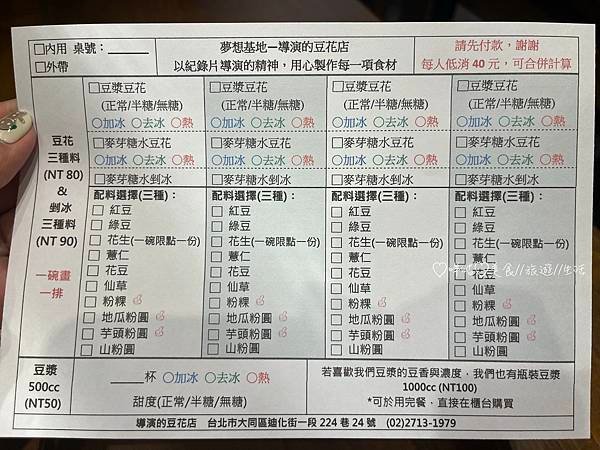 □內用 桌號：______
□外帶
夢想基地—導演的豆花店
以紀錄片導演的精神，用心製作每一項食材
請先付款，謝謝
每人低消 40 元，可合併計算
豆花
三種料
(NT 80)
&
剉冰
三種料
(NT 90)
一碗畫
一排
□豆漿豆花
(正常/半糖/無糖)
○加冰 ○去冰 ○熱
□麥芽糖水豆花
○加冰 ○去冰 ○熱
□麥芽糖水剉冰
配料選擇(三種)：
□ 紅豆
□ 綠豆
□ 花生(一碗限點一份)
□ 薏仁
□ 花豆
□ 仙草
□ 粉粿
□ 地瓜粉圓
□ 芋頭粉圓
□ 山粉圓
□豆漿豆花
(正常/半糖/無糖)
○加冰 ○去冰 ○熱
□麥芽糖水豆花
○加冰 ○去冰 ○熱
□麥芽糖水剉冰
配料選擇(三種)：
□ 紅豆
□ 綠豆
□ 花生(一碗限點一份)
□ 薏仁
□ 花豆
□ 仙草
□ 粉粿
□ 地瓜粉圓
□ 芋頭粉圓
□ 山粉圓
□豆漿豆花
(正常/半糖/無糖)
○加冰 ○去冰 ○熱
□麥芽糖水豆花
○加冰 ○去冰 ○熱
□麥芽糖水剉冰
配料選擇(三種)：
□ 紅豆
□ 綠豆
□ 花生(一碗限點一份)
□ 薏仁
□ 花豆
□ 仙草
□ 粉粿
□ 地瓜粉圓
□ 芋頭粉圓
□ 山粉圓
□豆漿豆花
(正常/半糖/無糖)
○加冰 ○去冰 ○熱
□麥芽糖水豆花
○加冰 ○去冰 ○熱
□麥芽糖水剉冰
配料選擇(三種)：
□ 紅豆
□ 綠豆
□ 花生(一碗限點一份)
□ 薏仁
□ 花豆
□ 仙草
□ 粉粿
□ 地瓜粉圓
□ 芋頭粉圓
□ 山粉圓
美食//旅遊//生活
豆漿
500cc
(NT50)
_____杯 ○加冰 ○去冰 ○熱
甜度(正常/半糖/無糖)
若喜歡我們豆漿的豆香與濃度，我們也有瓶裝豆漿
1000cc (NT100)
*可於用完餐，直接在櫃台購買
導演的豆花店 台北市大同區迪化街一段 224 巷 24 號 (02)2713-1979